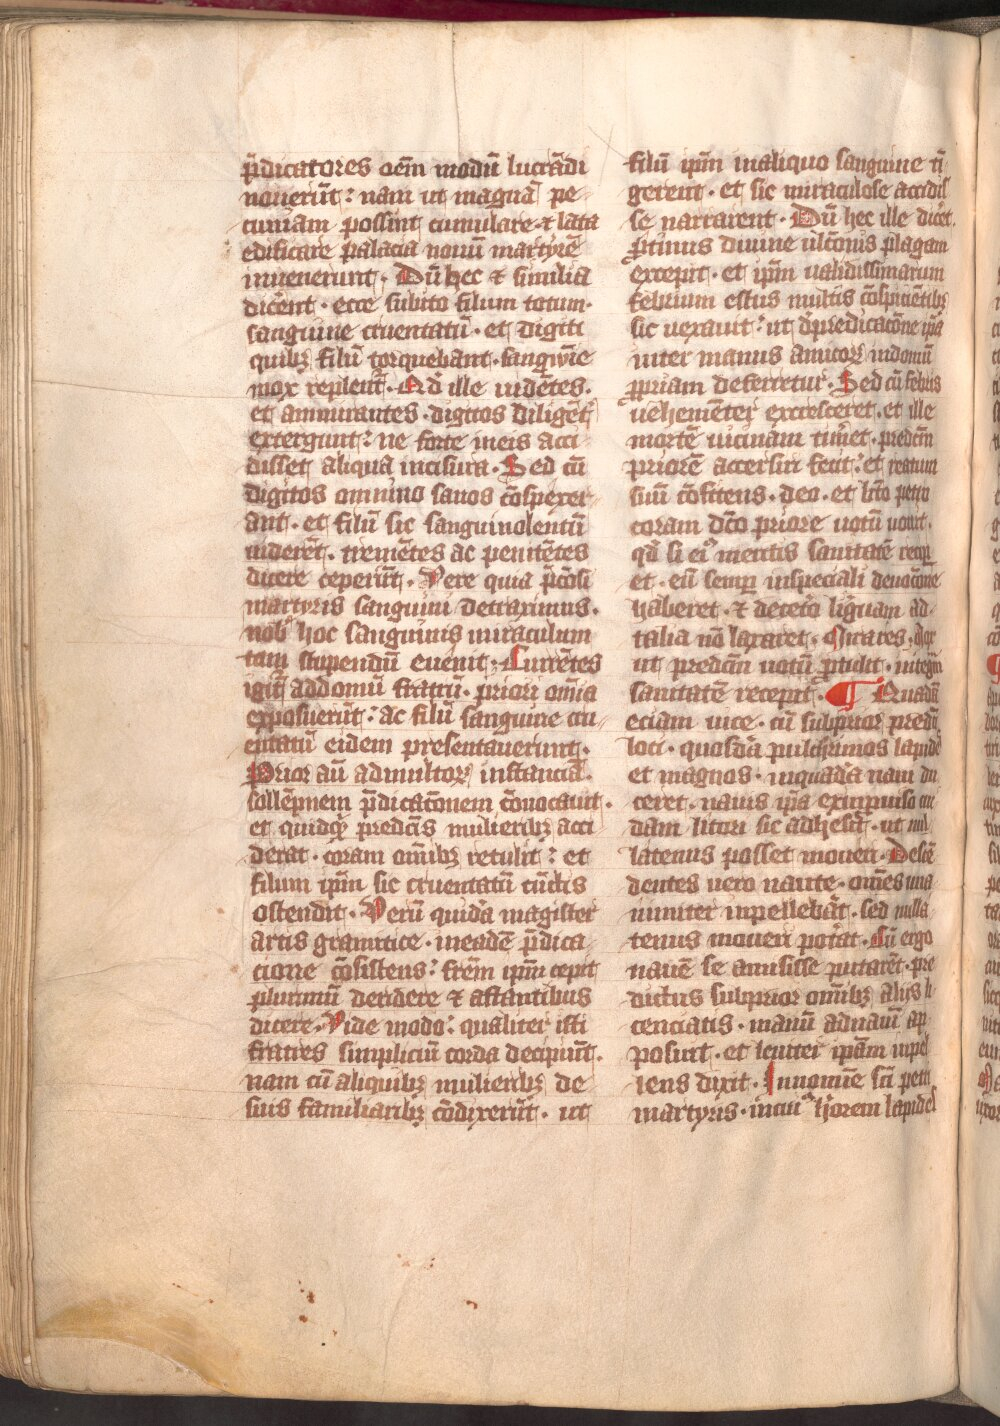 p̄dicatores oēm modū lucrādi
nouerūt: nam ut magnā pe-
cuniam possint cumulare · ⁊ lata
edificare palacia nouū martyrē
inuenerunt · Dū hec ⁊ similia
dicēnt · ecce subito filum totum ·
sanguine cruentatū · et digiti
quibꝫ filū torquebant · sangwīe
mox replent᷑ · Qd ille uidētes ·
et ammirantes · digitos diligēt᷑
extergunt: ne forte in eis acci-
disset aliqua incisura · Sed cū
digitos omnino sanos cōspexer-
ant · et filū sic sanguinolentū
uiderēt · tremētes ac penitētes
dicere ceperūt · Vere quia p̄ciosi
martyris sanguini detraximus ·
nobꝰ hoc sanguinis miraculum
tam stupendū euenit · Currētes
igit᷑ ad domū fratrū · priori omīa
exposuerūt: ac filū sanguine cru-
entatū eidem presentauerunt ·
Prior aū ad multoꝝ instanciā ·
sollēpnem p̄dicatōnem cōuocauit ·
et quidqꝫ predcīs mulieribꝫ acci
derat · coram oīnibꝫ retulit: et
filum ipm̄ sic cruentatū cūctis
ostendit · Verū quidā magister
artis gramatice · in eadē p̄dica-
cione cōsistens: frēm ipm̄ cepit
plurimū deridere ⁊ astantibus
dicere · Vide modo: qualiter isti
fratres simpliciū corda decipiūt ·
nam cū aliquibꝫ mulieribꝫ de
suis familiaribꝫ cōdixerūt · ut
filū ipm̄ in aliquo sanguine tī-
gerent · et sic miraculose accidis
se narrarent · Dū hec ille dicēt ·
ꝓtinus diuine ultōnis plagam
excepit · et ipm̄ ualidissimarum
febrium estus multis cōspiciētibꝫ
sic uexauit: ut d̄ predicatōne ipā
inter manus amicoꝝ in domū
ꝓpriam deferretur · Sed cū febris
uehemēter excresceret · et ille
mortē uicinam timēt · predcm̄
priorē accersiri fecit: et reatum
suū cōfitens · deo · et bt̄o petro
coram dc̄o priore uotū uouit ·
qd̄ si eiꝰ meritis sanitatē recip̄
et · eū semp̄ in speciali deuocōne
haberet · ⁊ de cet̄o linguam ad
talia nō laxaret · Mira res · Mox
ut predcm̄ uotū ꝓtulit · integm̄
sanitatē recepit · ¶ Quadā
eciam uice · cū subprior predc̄i
loci · quosdā pulcherrimos lapide
et magnos · in quadā naui du
ceret · nauis ipā ex inpuiso cui
dam litori sic adhesit · ut nul
latenus posset moueri · Descē
dentes uero naute · omēs una
nimiter inpellebāt · sed nulla
tenus moueri pot̄at · Cū ergo
nauē se amisisse putarēt · pre
dictus subprior omībꝫ alijs li
cenciatis · manū ad nauū ap
posuit · et leuiter ipam inpel
lens dixit · In nomīe sc̄i petri
martyris · in cuiꝰ hōrem lapides